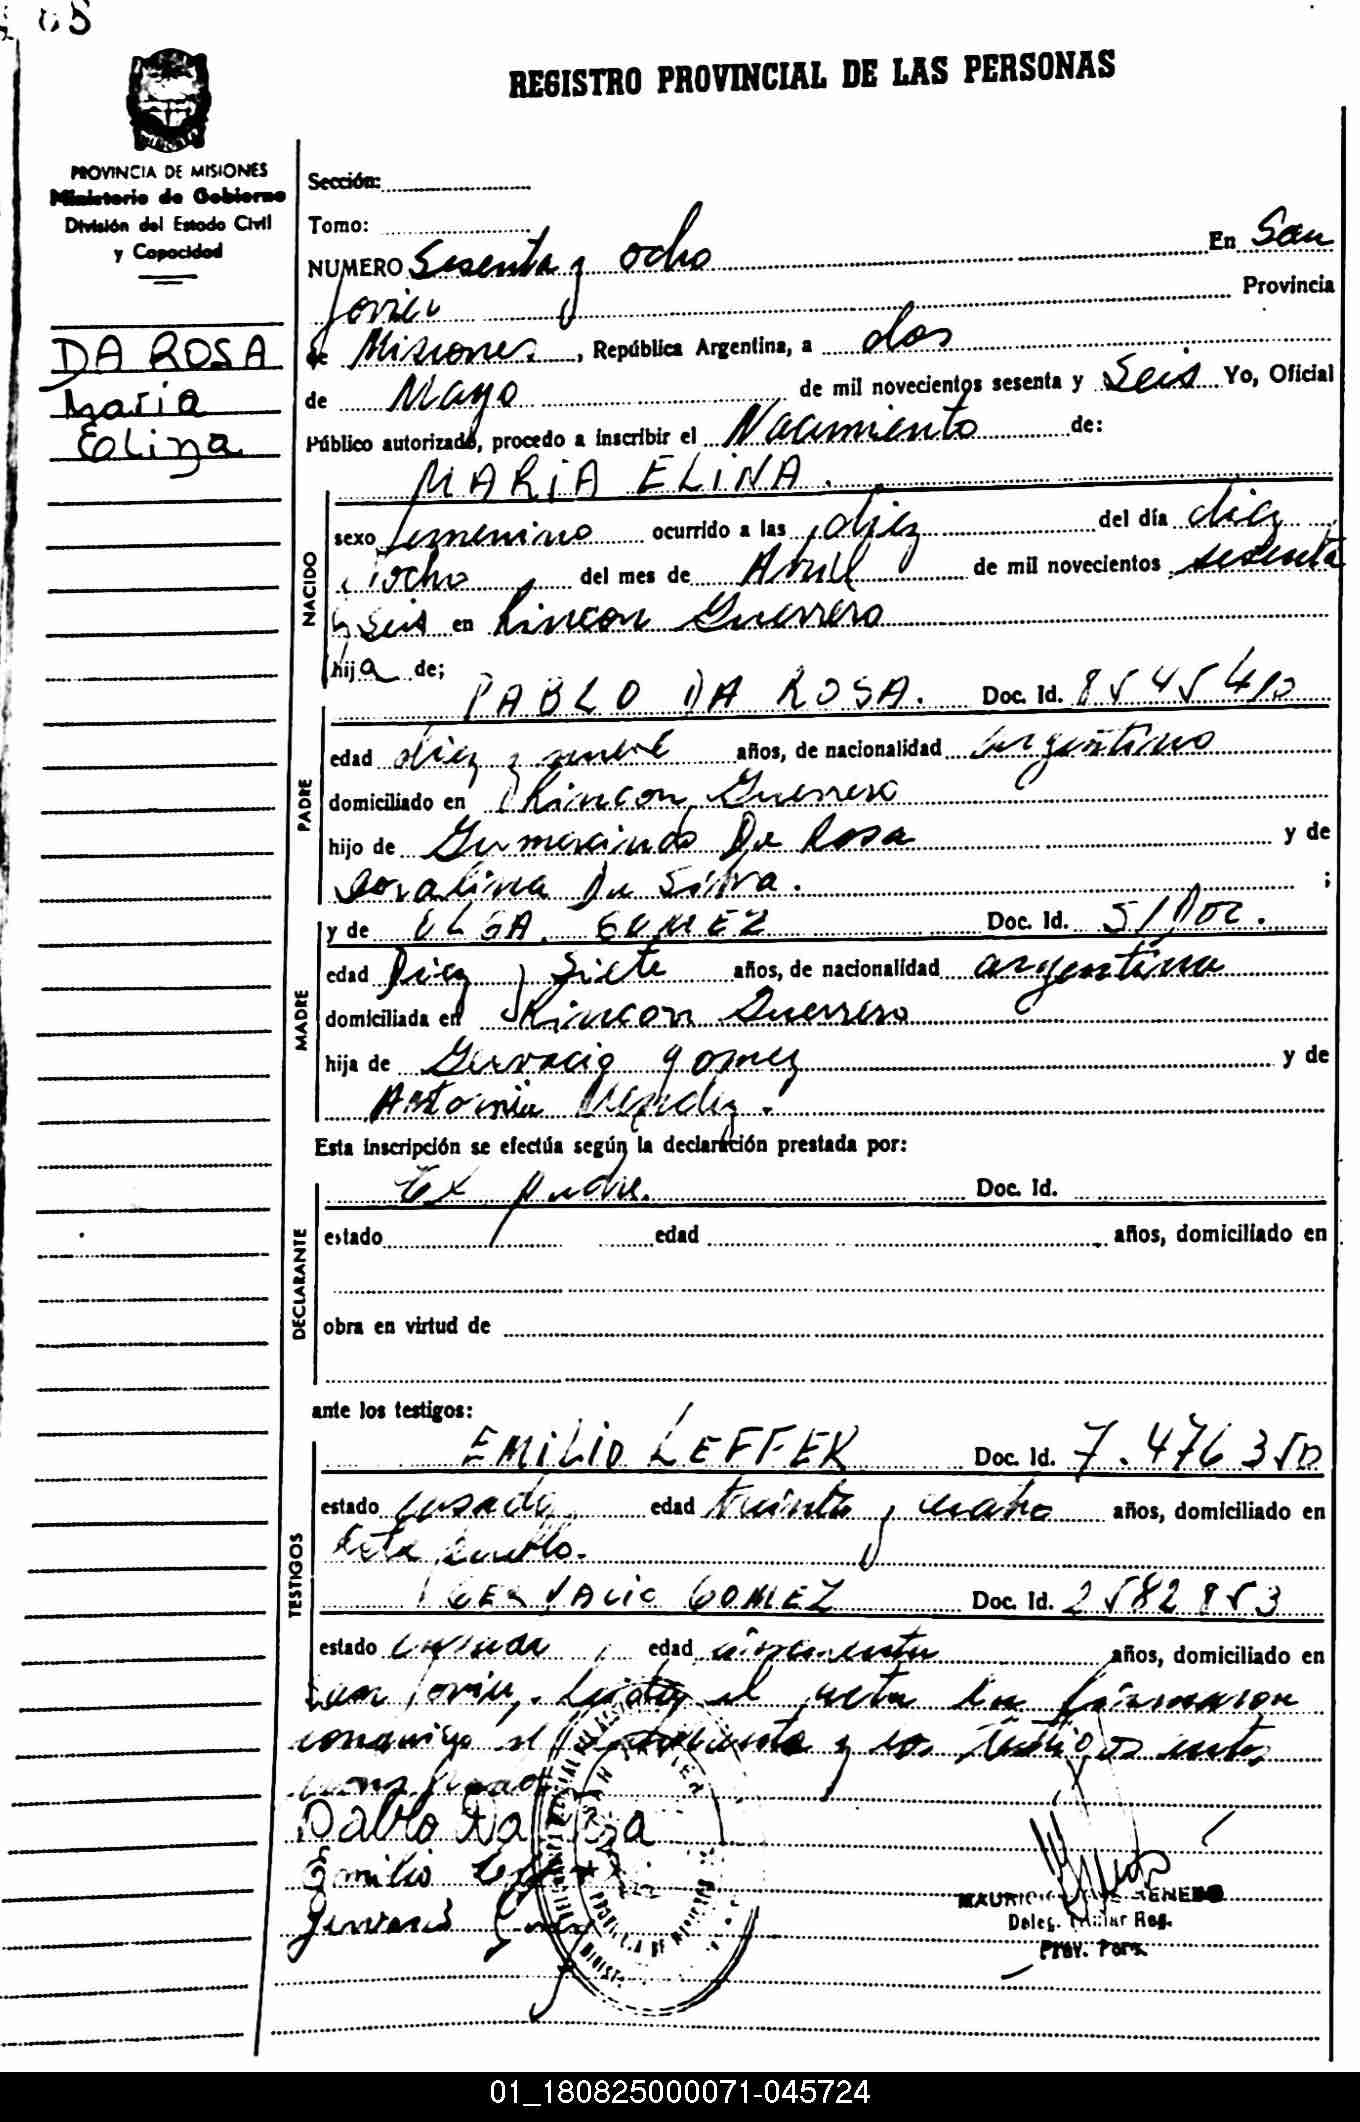 68
REGISTRO PROVINCIAL DE LAS PERSONAS
PROVINCIA DE MISIONES
Ministerio de Gobierno
División del Estado Civil
y Capacidad
DA ROSA
Maria
Elina
Sección:
Tomo:
NUMERO Sesenta y ocho En San
Javier Provincia
de Misiones, República Argentina, a dos
de Mayo de mil novecientos sesenta y Seis Yo, Oficial
Público autorizado, procedo a inscribir el Nacimiento de:
MARIA ELINA.
NACIDO
sexo femenino ocurrido a las diez del día diez
y ocho del mes de Abril de mil novecientos sesenta
y Seis en Rincon Guerrero
hija de;
PADRE
PABLO DA ROSA. Doc. Id. 8545410
edad diez y nueve años, de nacionalidad argentino
domiciliado en Rincon Guerrero
hijo de Gumercindo Da Rosa y de
Da Silva. ;
MADRE
y de OLGA GOMEZ Doc. Id. S/Doc.
edad Diez y Siete años, de nacionalidad argentina
domiciliada en Rincon Guerrero
hija de Gervacio Gomez y de
Antonia Mendez.
Esta inscripción se efectúa según la declaración prestada por:
DECLARANTE
El padre. Doc. Id.
estado edad años, domiciliado en
obra en virtud de
ante los testigos:
TESTIGOS
EMILIO LEFFER Doc. Id. 7.476350
estado casado edad treinta y cuatro años, domiciliado en
este pueblo.
GERVACIO GOMEZ Doc. Id. 2582853
estado casado edad cincuenta años, domiciliado en
San Javier, Leida el acta la firmaron
conmigo el y los testigos antes
Pablo Da Rosa
Emilio Leffer
Gervacio Gomez
MAURICIO
Deleg. Titular Reg.
Prov. Pers.
01_180825000071-045724